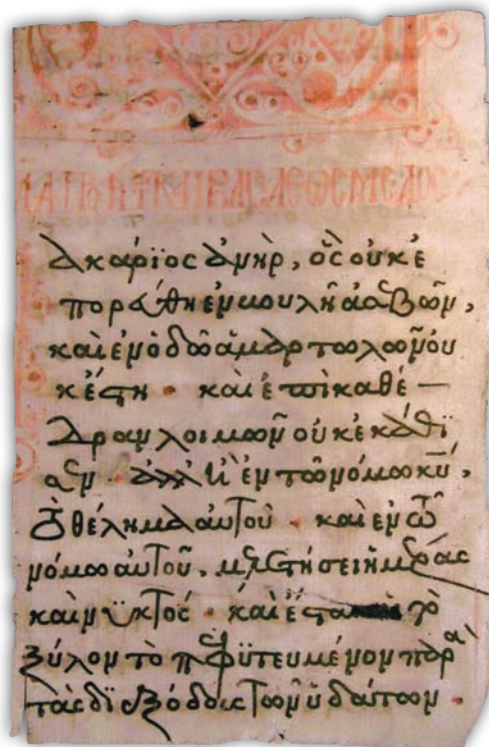 ΚΑΙ ΒΑΣΙΛΕΩΣ ΜΕΛΟΣ
ακάρϊος ἀνὴρ, ὃς οὐκ ἐ
πορεύθη ἐν βουλῆ ἀσεβῶν,
καὶ ἐν ὁδῶ ἁμαρτωλῶν οὐ
κ ἔστη · καὶ ἐπὶ καθέ—
δραν λοιμῶν οὐκ ἐκάθϊ
σεν · ἀλλ' ἢ ἐν τῶ νόμω κῡ,
τὸ θέλημα αὐτοῦ · καὶ ἐν τῶ
νόμω αὐτοῦ, μελετήσει ἡμέρας
καὶ νϋκτός · καὶ ἔστα τὸ
ξύλον τὸ πεφϋτευμένον παρὰ
τὰς διεξόδους τῶν ὑδάτων ·